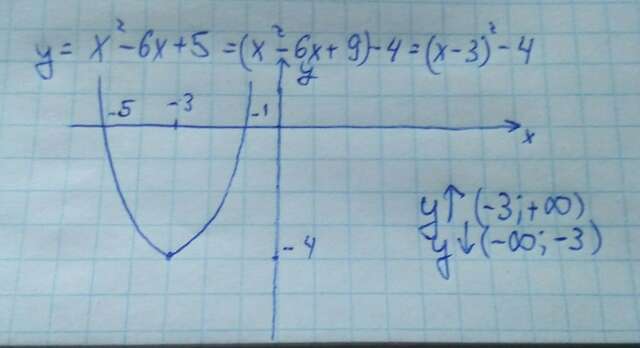 y = x²-6x+5 = (x²-6x+9)-4 = (x-3)²-4
y
-5 -3 -1
x
y↑ (-3; +∞)
y↓ (-∞; -3)
-4